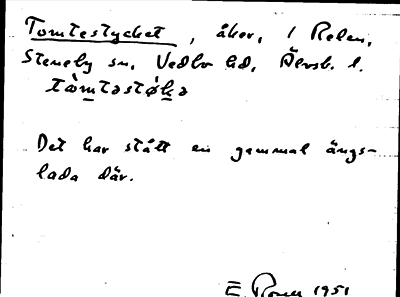 Tomtestycket, åker, 1 Relen,
Steneby sn, Vedbo hd, Älvsb. l.
tòmtəstøkə
Det har stått en gammal ängs-
lada där.
E. 1951